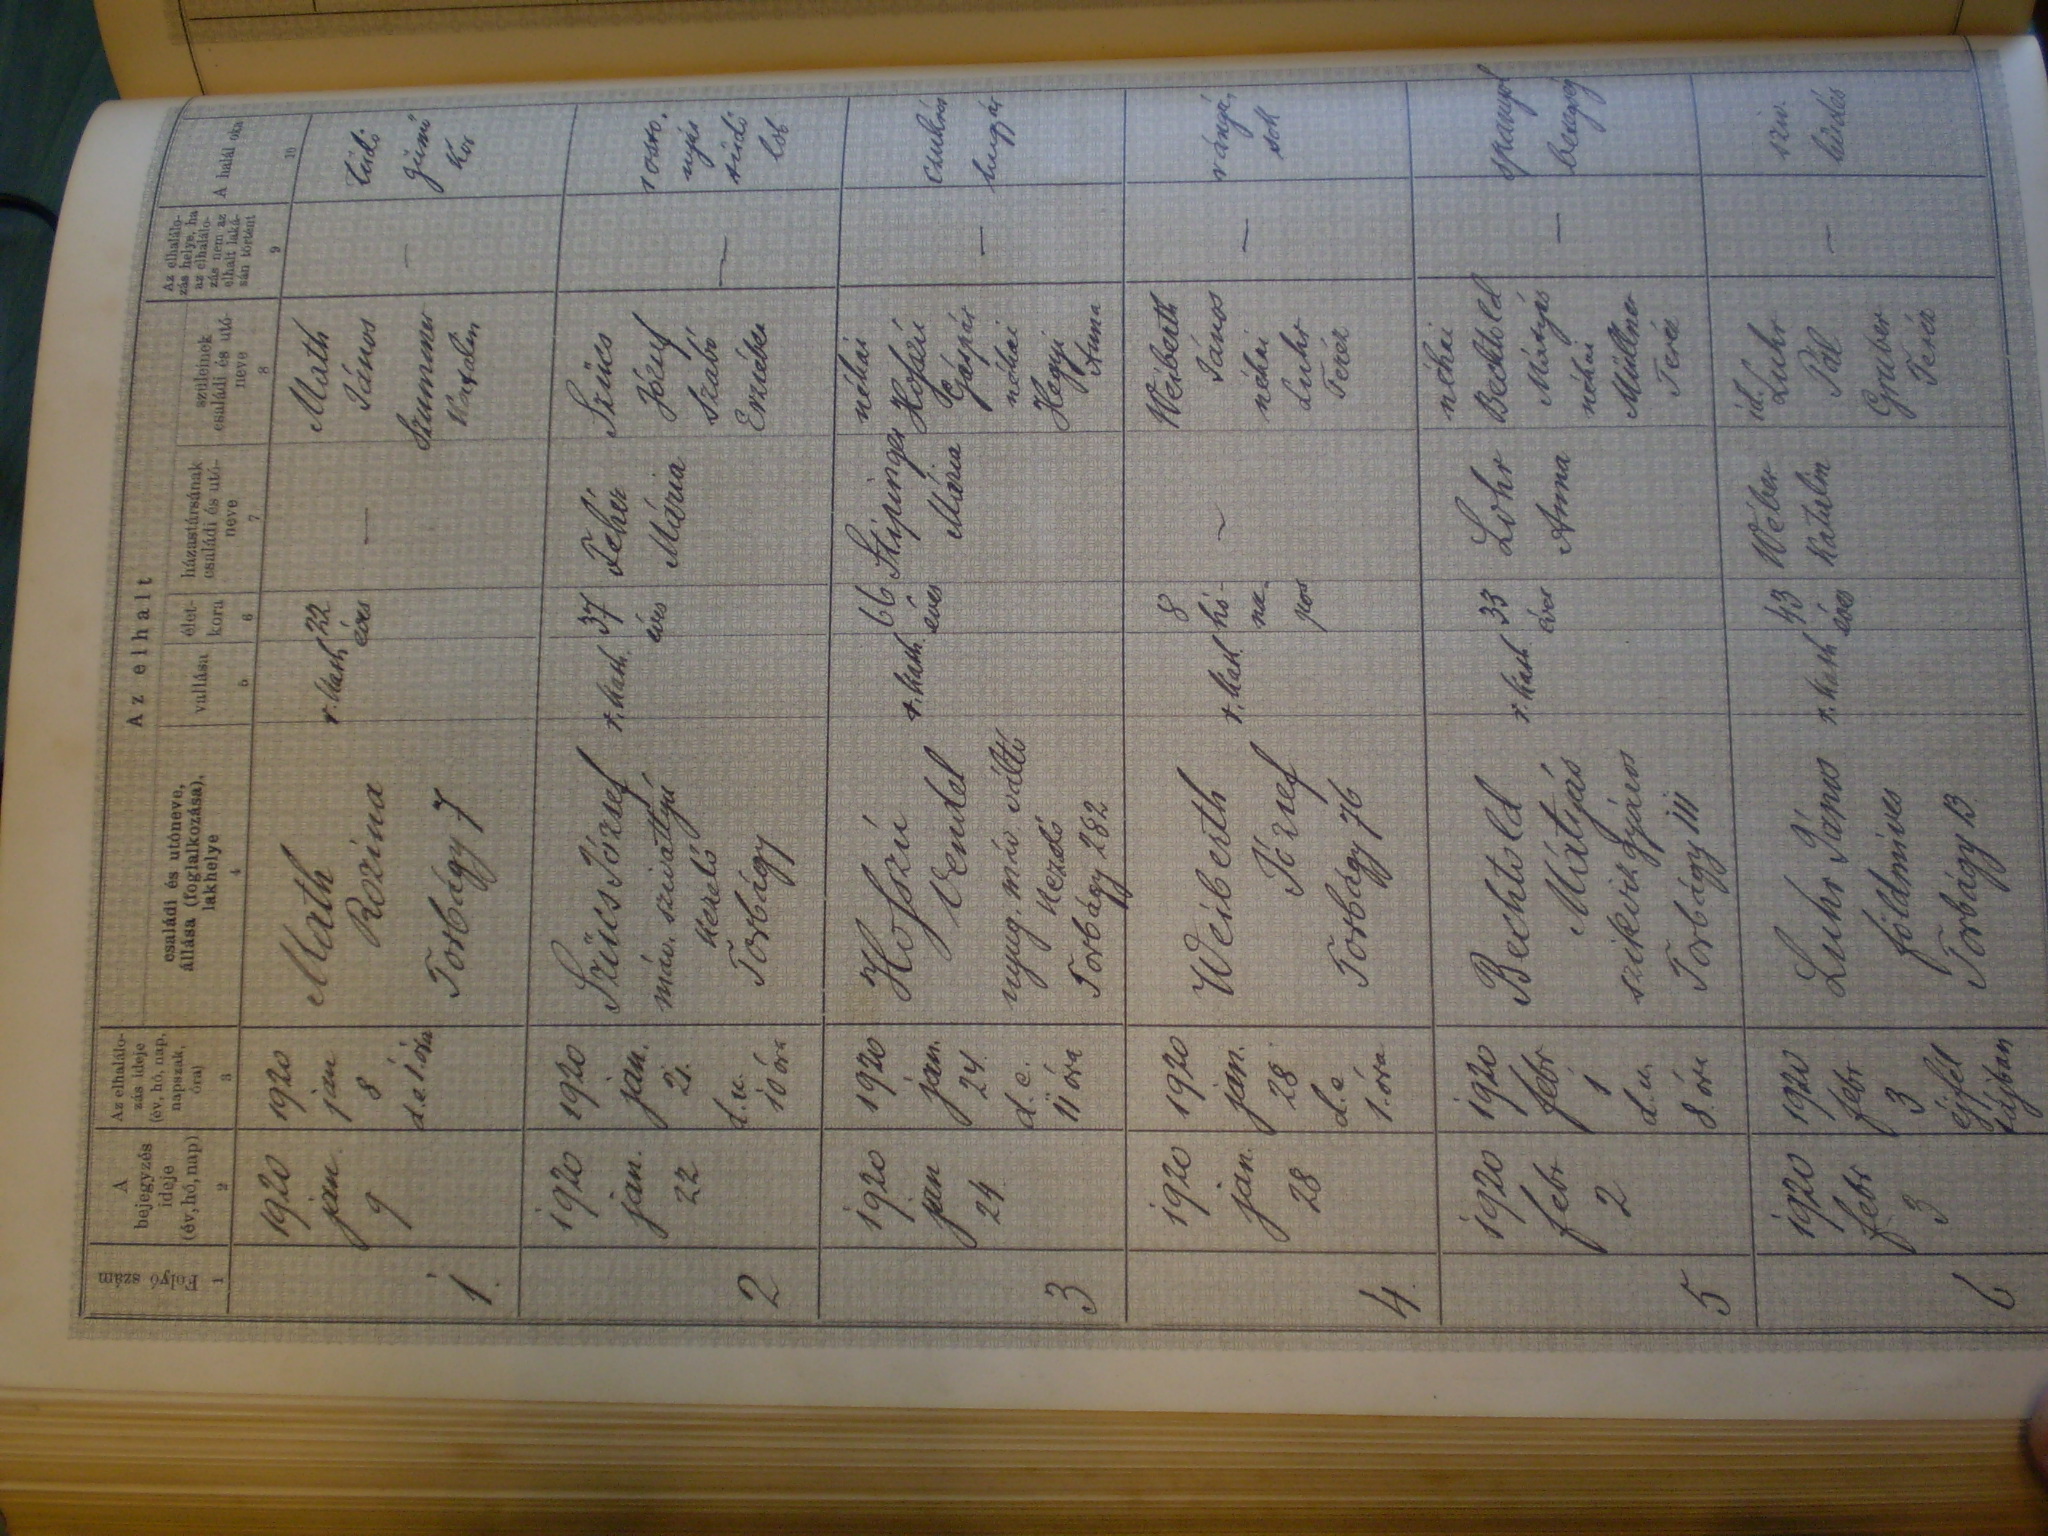 Az elhalt
Folyó szám
A bejegyzés ideje (év, hó, nap)
Az elhalálozás ideje (év, hó, nap, napszak, óra)
családi és utóneve, állása (foglalkozása), lakhelye
vallása
élet-kora
házastársának családi és utó-neve
szüleinek családi és utó-neve
Az elhalálo-zás helye, ha az elhalálo-zás nem az elhalt laká-sán történt
A halál oka
1 2 3 4 5 6 7 8 9 10
1.
1920
jan.
9
1920
jan
8
d.e. 1. óra
Math
Rozina
Torbágy 7
r. kath
22
éves
—
Math
János
Szummer
Katalin
—
tüdő
gümő
kór
2
1920
jan.
22
1920
jan.
21.
d.u.
10 óra
Szűcs József
máv. szivattyú
kezelő
Torbágy
r. kath.
37
éves
Fehér
Mária
Szűcs
József
Szabó
Erzsébet
—
nyás
tüdő
lob
3
1920
jan
24
1920
jan.
24.
d.e.
11 óra
Hofszú
Vendel
nyug. máv váltó
kezelő
Torbágy 282
r. kath
66
éves
Stipinger
Mária
néhai
Hofszú
Gáspár
néhai
Hegyi
Anna
—
4.
1920
jan.
28
1920
jan.
28
d.e.
1. óra
Weiberth
József
Torbágy 76
r. kath
8
hó-
na-
pos
—
Weiberth
János
néhai
Luhr
Teréz
—
rángá-
sok
5
1920
febr
2
1920
febr
1
d.u.
8. óra
Bechtold
Mátyás
szikvizgyáros
Torbágy 111
r. kath
33
éves
Lohr
Anna
néhai
Bechtold
Mátyás
néhai
Müllner
Teréz
—
spanyol
betegség
6
1920
febr
3
1920
febr
3
éjfél
tájban
Luhr János
földmíves
Torbágy 13
r. kath
43
éves
Wéber
Katalin
id. Luhr
Pál
Gruber
Teréz
—
szív.
hűdés